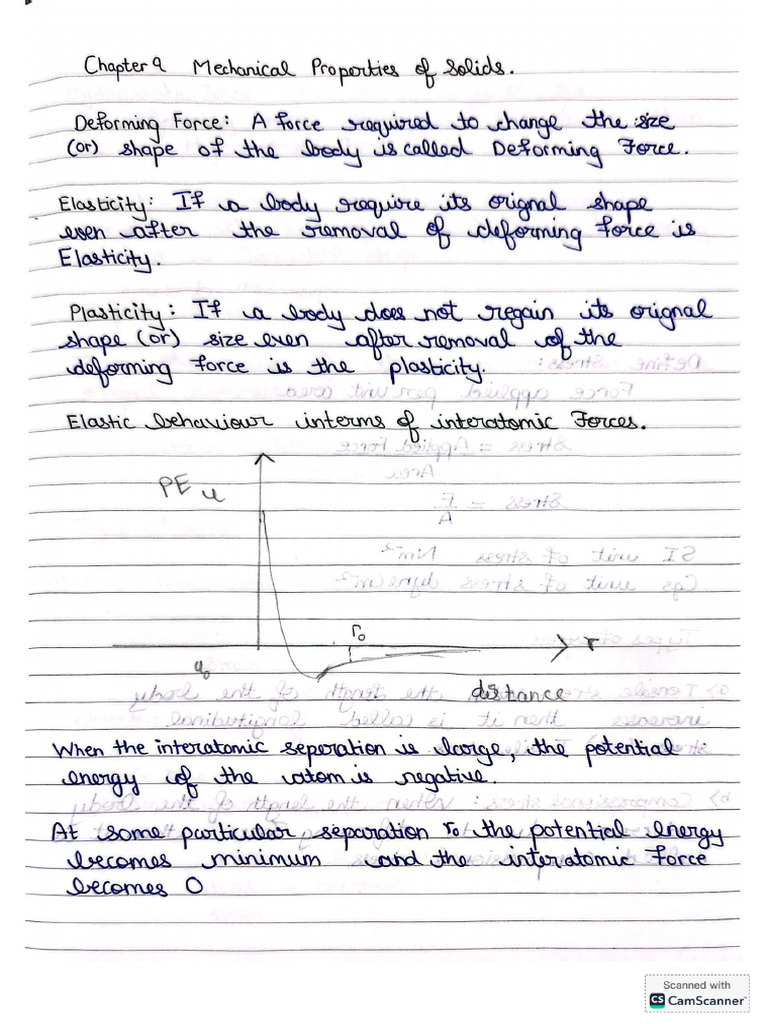 Chapter 9 Mechanical Properties of Solids.
Deforming Force: A force required to change the size
(or) shape of the body is called Deforming Force.
Elasticity: If a body require its orignal shape
even after the removal of deforming force is
Elasticity.
Plasticity: If a body does not regain its orignal
shape (or) size even after removal of the
deforming force is the plasticity.
Elastic behaviour interms of interatomic Forces.
PE u
r₀
r
u₀
distance
When the interatomic seperation is large, the potential
energy of the atom is negative.
At some particular separation r₀ the potential energy
becomes minimum and the interatomic force
becomes 0
Scanned with
CS CamScanner